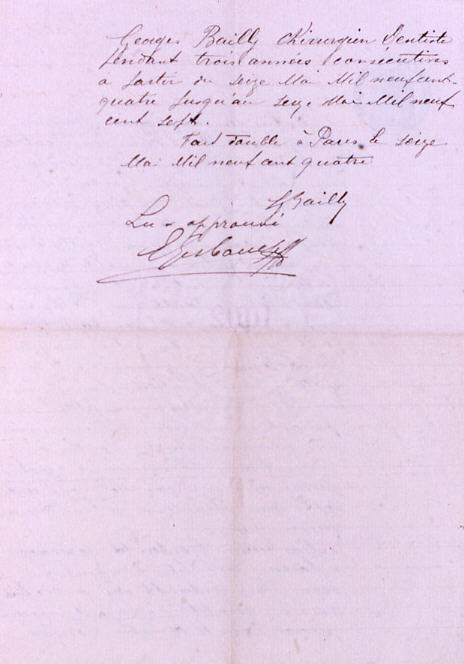 Georges Bailly Chirurgien Dentiste
pendant trois années consécutives
a partir du seize Mai Mil neuf cent
quatre jusqu'au seize Mai Mil neuf
cent sept.
Fait double à Paris le seize
Mai Mil neuf cent quatre
G Bailly
Lu et approuvé